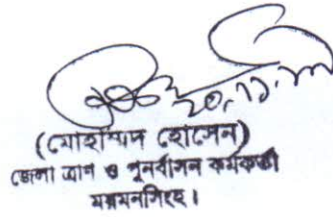 ২০.১২.১১
(মোহাম্মদ হোসেন)
জেলা ত্রাণ ও পুনর্বাসন কর্মকর্তা
ময়মনসিংহ।